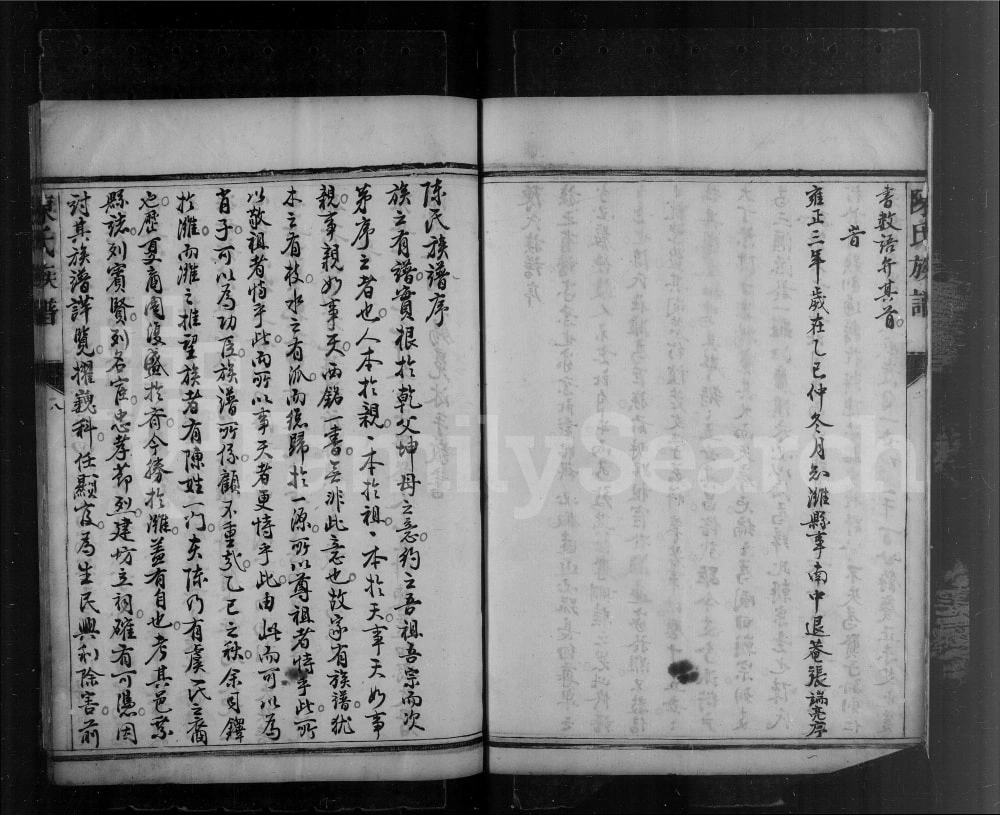 書数語弁其首
旹
雍正三年歲在乙巳仲冬月知濰縣事南中退菴張端亮序
陳氏族譜
陳氏族譜序
族之有譜實根於乾父坤母之意約之吾祖吾宗而次
第序之者也人本於親親本於祖祖本於天事天如事
親事親如事天西銘一書無非此意也故家有族譜猶
木之有枝水之有派而總歸於一源所以尊祖者恃乎此所
以敬祖者恃乎此而所以事天者更恃乎此由此而可以為
肖子可以為功臣族譜所係顧不重哉乙巳之秋余司鐸
於濰而濰之推望族者有陳姓一門夫陳乃有虞氏之裔
也歷夏商周浸盛於齊今勝於濰蓋有自也考其邑乘
縣誌列賓賢列名宦忠孝節烈建坊立祠確有可憑因
討其族譜詳覽擢巍科任顯宦為生民興利除害前
陳氏族譜
八
FamilySearch